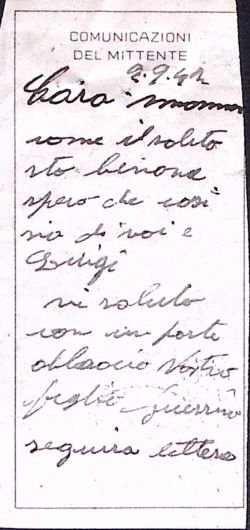 COMUNICAZIONI
DEL MITTENTE
9.9.42
Cara mamma
come il solito
sto benone
spero che cosi
sia di voi e
Luigi
vi saluto
con un forte
abbraccio vostro
figlio Guerrino
seguira lettera